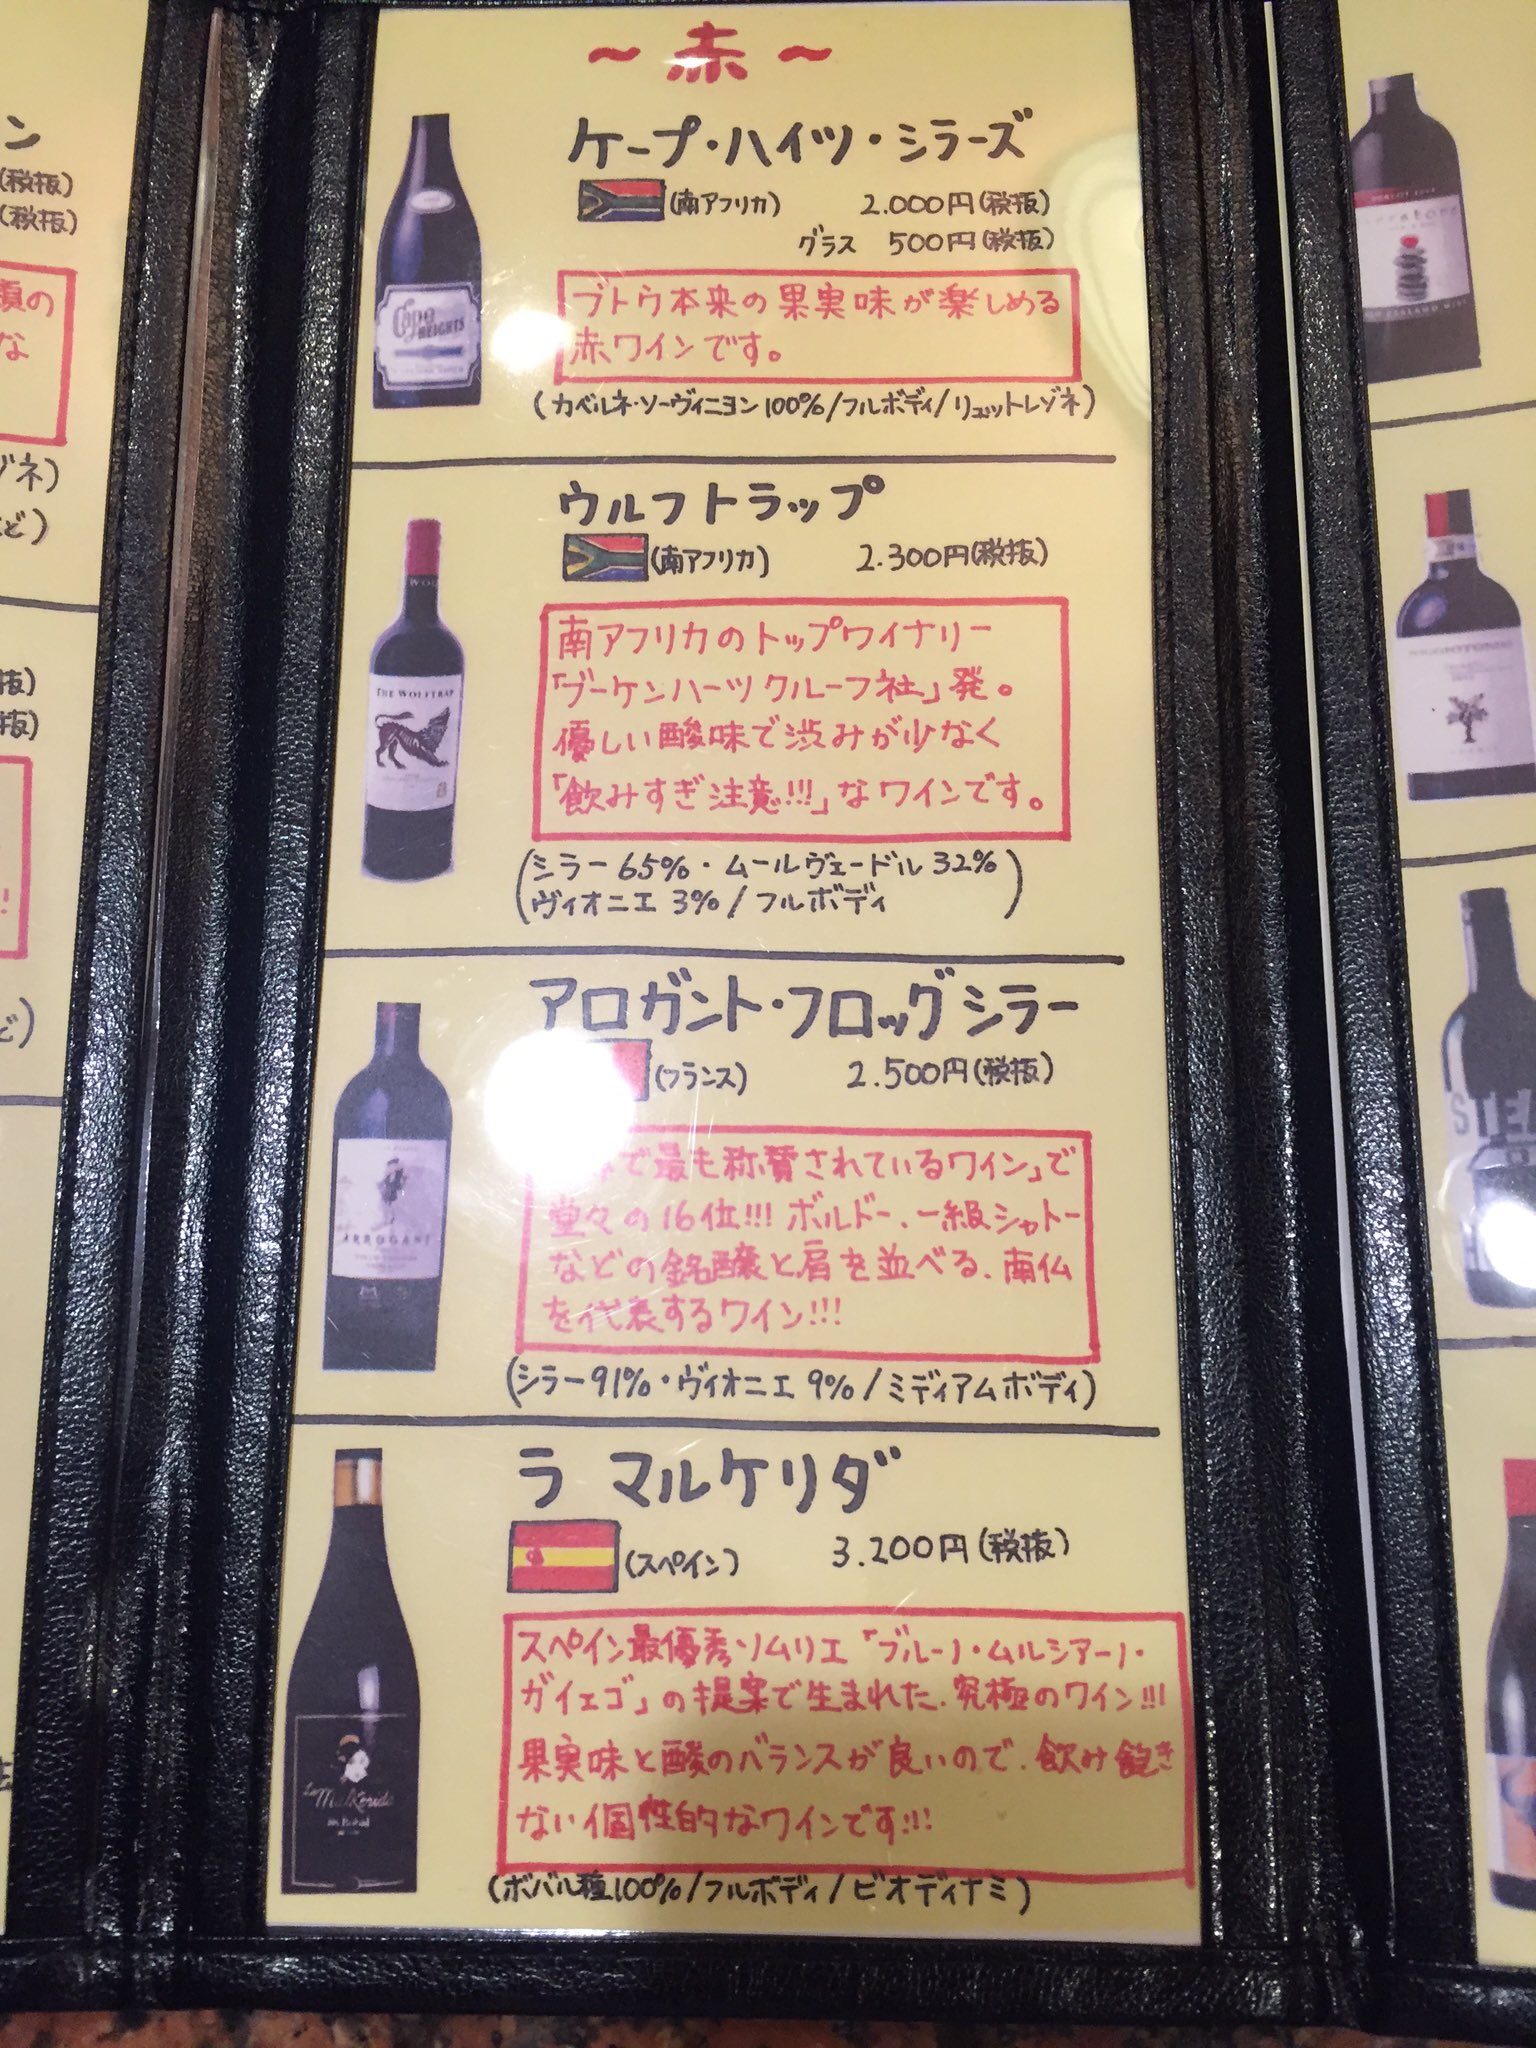 ～赤～
ケープ・ハイツ・シラーズ
(南アフリカ) 2.000円(税抜)
グラス 500円(税抜)
ブトウ本来の果実味が楽しめる
赤ワインです。
(カベルネ・ソーヴィニヨン100%/フルボディ/リュットレゾネ)
Cape
HEIGHTS
ウルフトラップ
(南アフリカ) 2.300円(税抜)
南アフリカのトップワイナリー
「ブーケンハーツクルーフ社」発。
優しい酸味で渋みが少なく
「飲みすぎ注意!!!」なワインです。
(シラー65%・ムールヴェードル32%
ヴィオニエ3%/フルボディ)
THE WOLFTRAP
アロガント・フロッグシラー
(フランス) 2.500円(税抜)
で最も称賛されているワイン」で
堂々の16位!!! ボルドー、一級シャトー
などの銘醸と肩を並べる、南仏
を代表するワイン!!!
(シラー91%・ヴィオニエ9%/ミディアムボディ)
ARROGANT
ラ マルケリダ
(スペイン) 3.200円(税抜)
スペイン最優秀ソムリエ「ブルーノ・ムルシアーノ・
ガイェゴ」の提案で生まれた、究極のワイン!!!
果実味と酸のバランスが良いので、飲み飽き
ない個性的なワインです!!!
(ボバル種100%/フルボディ/ビオディナミ)
La Malkerida
ン
(税抜)
(税抜)
の
な
ネ)
ど)
抜)
抜)
!
ど)
STE